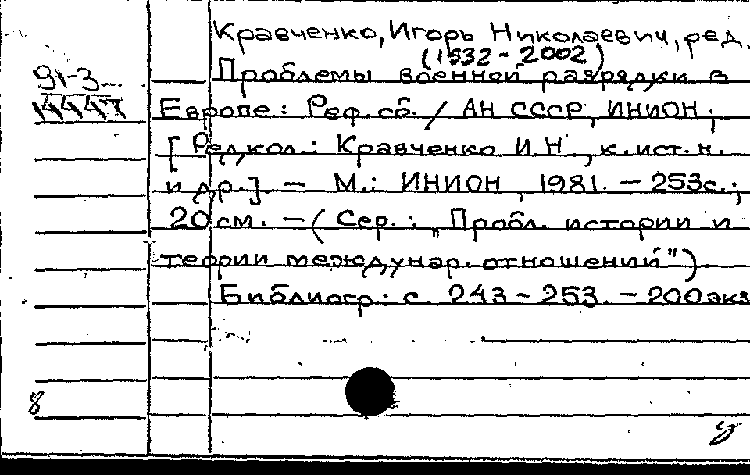 Кравченко, Игорь Николаевич, ред.
(1932-2002)
91-3
14447
Проблемы военной разрядки в
Европе: Реф. сб. / АН СССР, ИНИОН;
[Редкол.: Кравченко И.Н., к.ист.н.
и др.]. — М.: ИНИОН, 1981. — 253с.;
20 см. — (Сер.: "Пробл. истории и
теории междунар. отношений").
Библиогр.: с. 243-253. — 200 экз
8